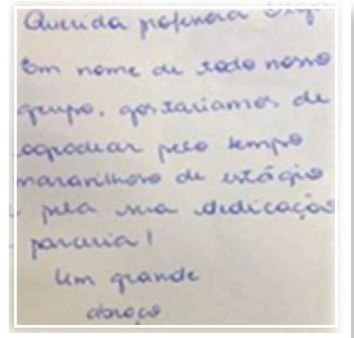 Querida professora
Em nome de todo nosso
grupo, gostaríamos de
agradecer pelo tempo
maravilhoso de estágio
e pela sua dedicação
parceria!
Um grande
abraço